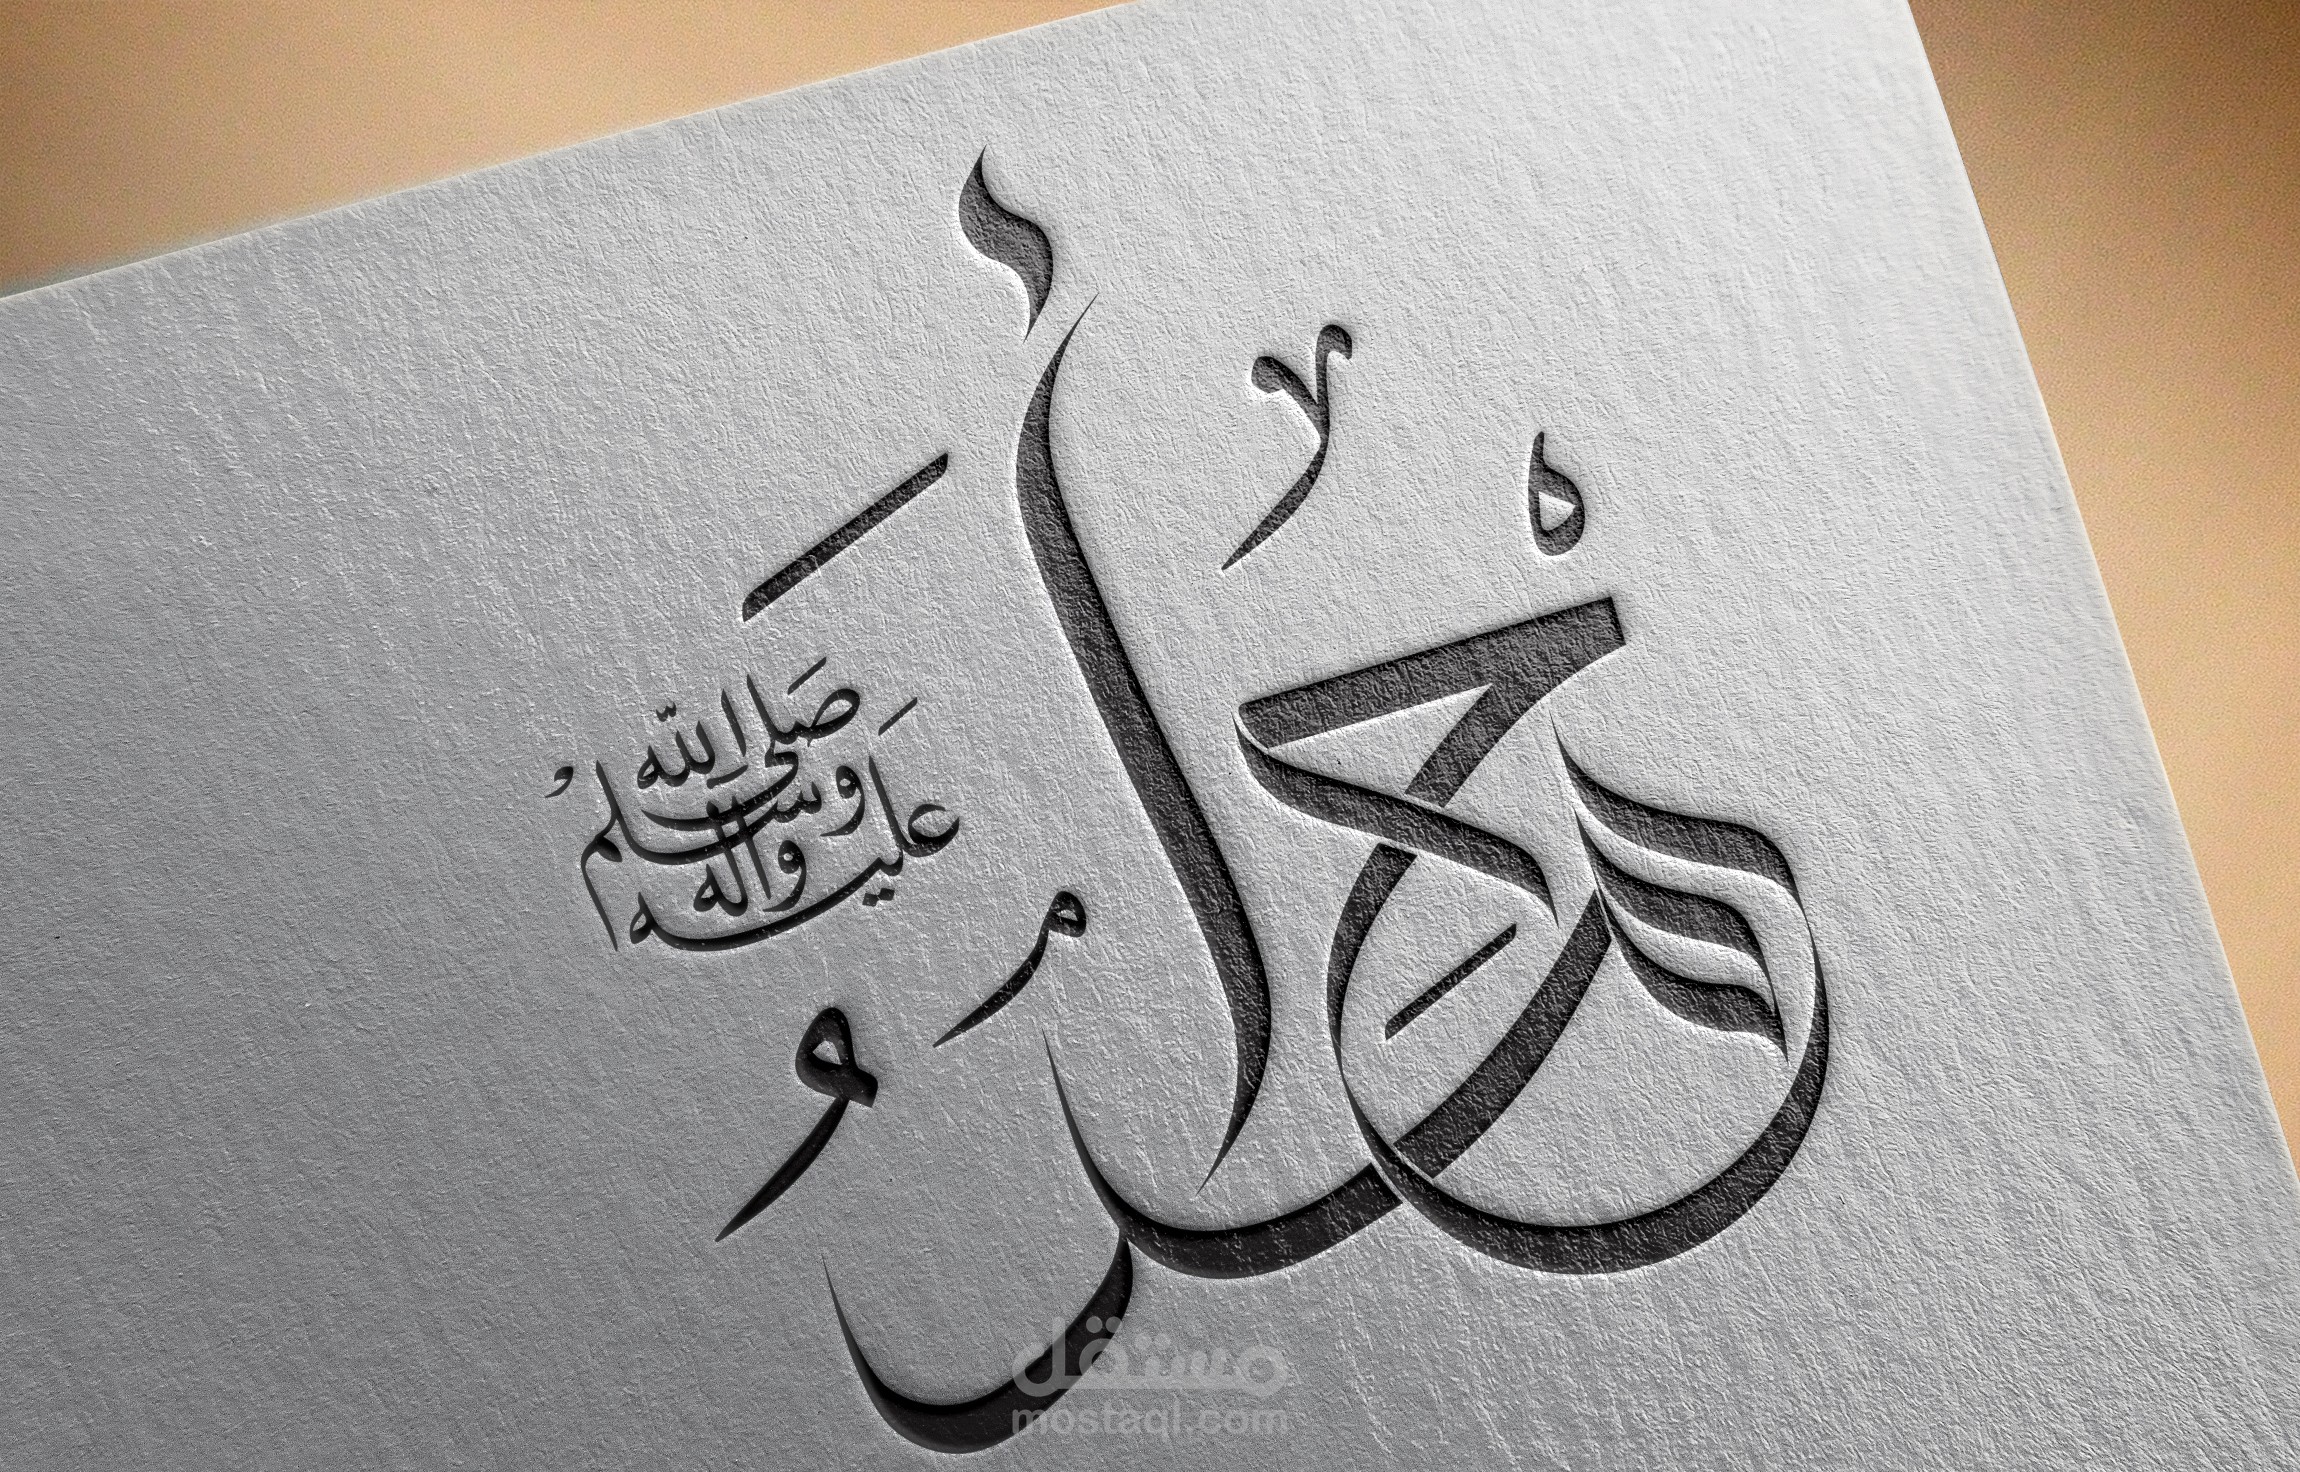 أَحْمَدُ
صلى الله عليه وآله وسلم
مستقل
mostaql.com